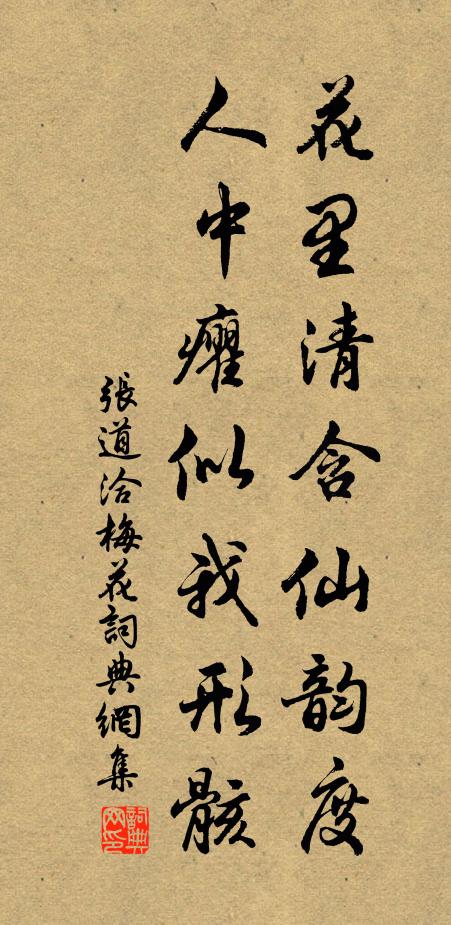 花里清含仙韵度
人中癯似我形骸
張道洽梅花詞典網集
詞典网印